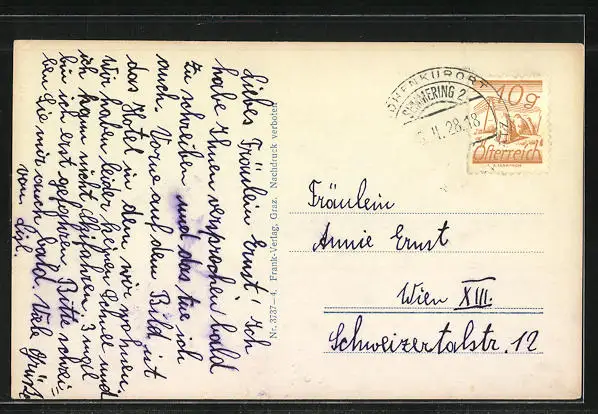 Liebes Fräulein Ernst! Ich
habe Ihnen versprochen bald
zu schreiben und das tue ich
auch. Vorne auf den Bild ist
das Hotel in den wir wohnen.
Wir haben leider keinen Schnee und
ich kann nicht Skifahren.
bin ich erst gefahren. Bitte schrei-
ben Sie mir auch bald. Viele Grüße
von
Nr. 3737—4. Frank-Verlag, Graz. Nachdruck verboten
HÖHENKURORT
SEMMERING 2
II. 28.18
10 g
Österreich
Fräulein
Annie Ernst
Wien XIII.
Schweizertalstr. 12